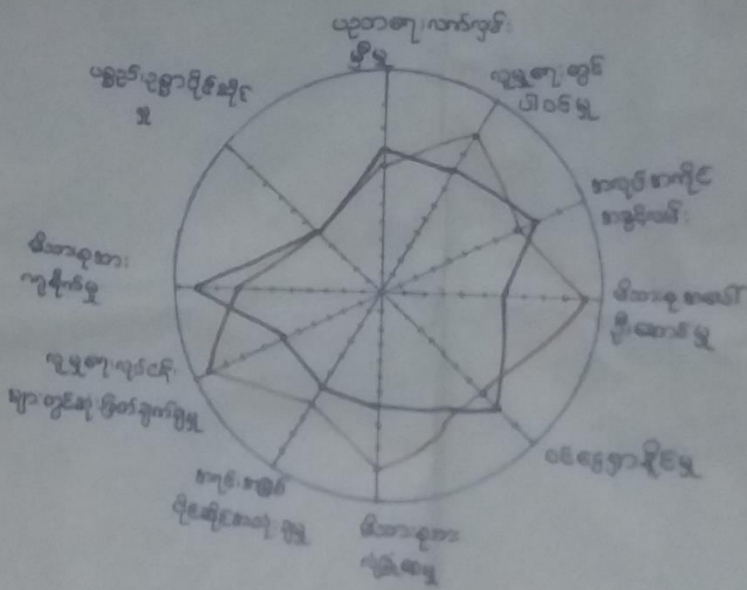 ယုဘာရေးလမ်းလှမ်း
မှီမှု
လူမှုရေးတွင်
ပါဝင်မှု
အလုပ်အကိုင်
အခွင့်လမ်း
မိသားစုအပေါ်
ဦးဆောင်မှု
ဝင်ငွေရှာနိုင်မှု
မိသားစုအား
လုံခြုံစေမှု
အရင်းအမြစ်
ပိုင်ဆိုင်အသုံးချမှု
လူမှုရေးလုပ်ငန်း
များတွင်ဆုံးဖြတ်ချက်ချမှု
မိသားစုအား
ကူစိုက်မှု
ပစ္စည်းဥစ္စာပိုင်ဆိုင်
မှု